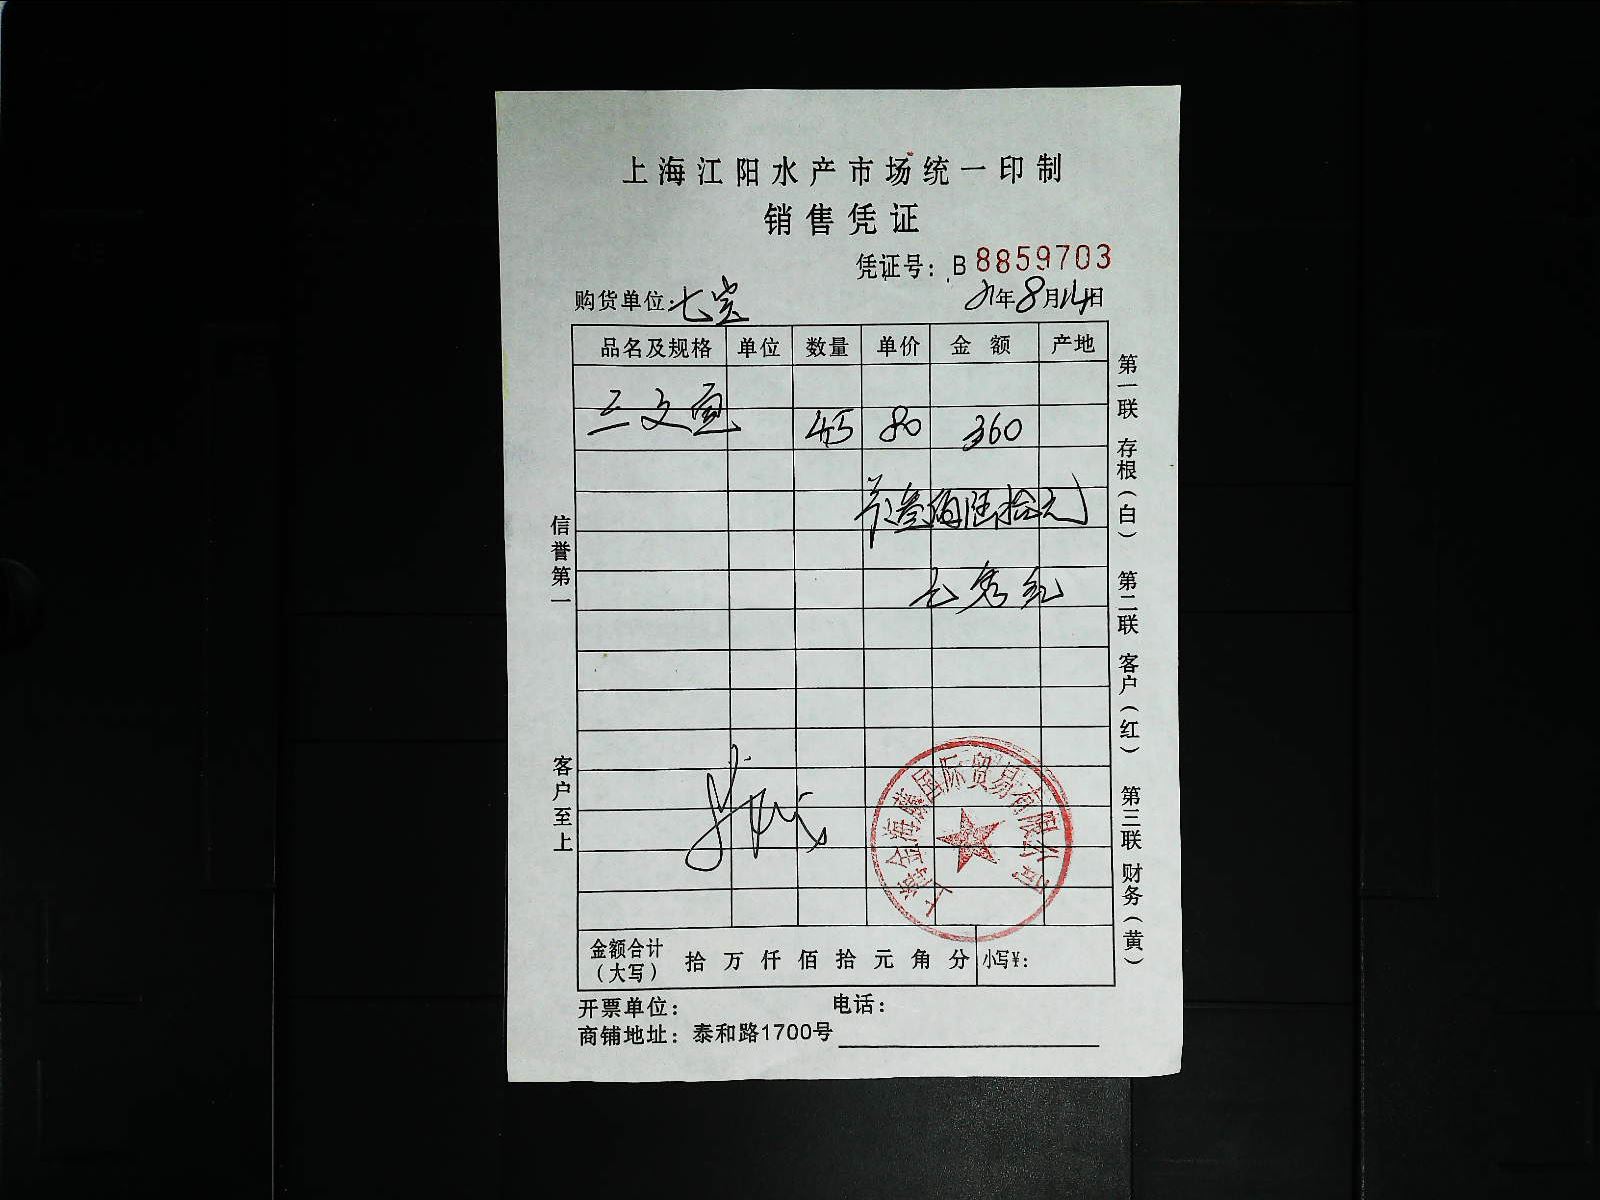 上海江阳水产市场统一印制
销售凭证
凭证号: B 8859703
购货单位: 七宝
21年8月14日
品名及规格 单位 数量 单价 金额 产地
三文鱼 4.5 80 360
叁佰陆拾元
信誉第一
客户至上
第一联 存根(白) 第二联 客户(红) 第三联 财务(黄)
国际贸易有限公司
金额合计(大写) 拾 万 仟 佰 拾 元 角 分 小写¥:
开票单位: 电话:
商铺地址: 泰和路1700号